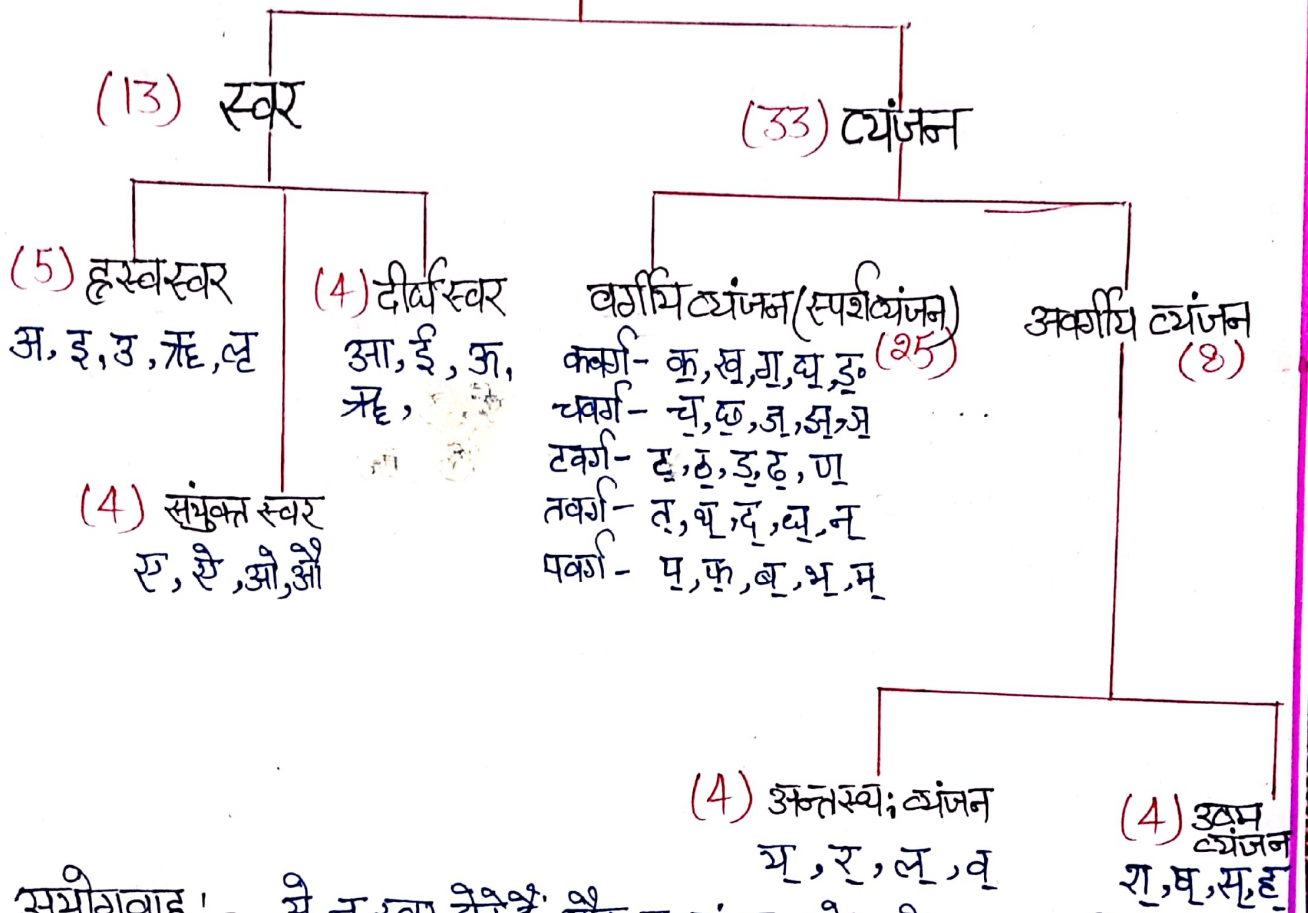 (13) स्वर
(33) व्यंजन
(5) ह्रस्व स्वर
अ, इ, उ, ऋ, लृ
(4) दीर्घ स्वर
आ, ई, ऊ,
ॠ,
(4) संयुक्त स्वर
ए, ऐ, ओ, औ
वर्गीय व्यंजन (स्पर्श व्यंजन)
(25)
कवर्ग - क्, ख्, ग्, घ्, ङ्
चवर्ग - च्, छ्, ज्, झ्, ञ्
टवर्ग - ट्, ठ्, ड्, ढ्, ण्
तवर्ग - त्, थ्, द्, ध्, न्
पवर्ग - प्, फ्, ब्, भ्, म्
अवर्गीय व्यंजन
(8)
(4) अन्तस्थः व्यंजन
य्, र्, ल्, व्
(4) उष्म
व्यंजन
श्, ष्, स्, ह्